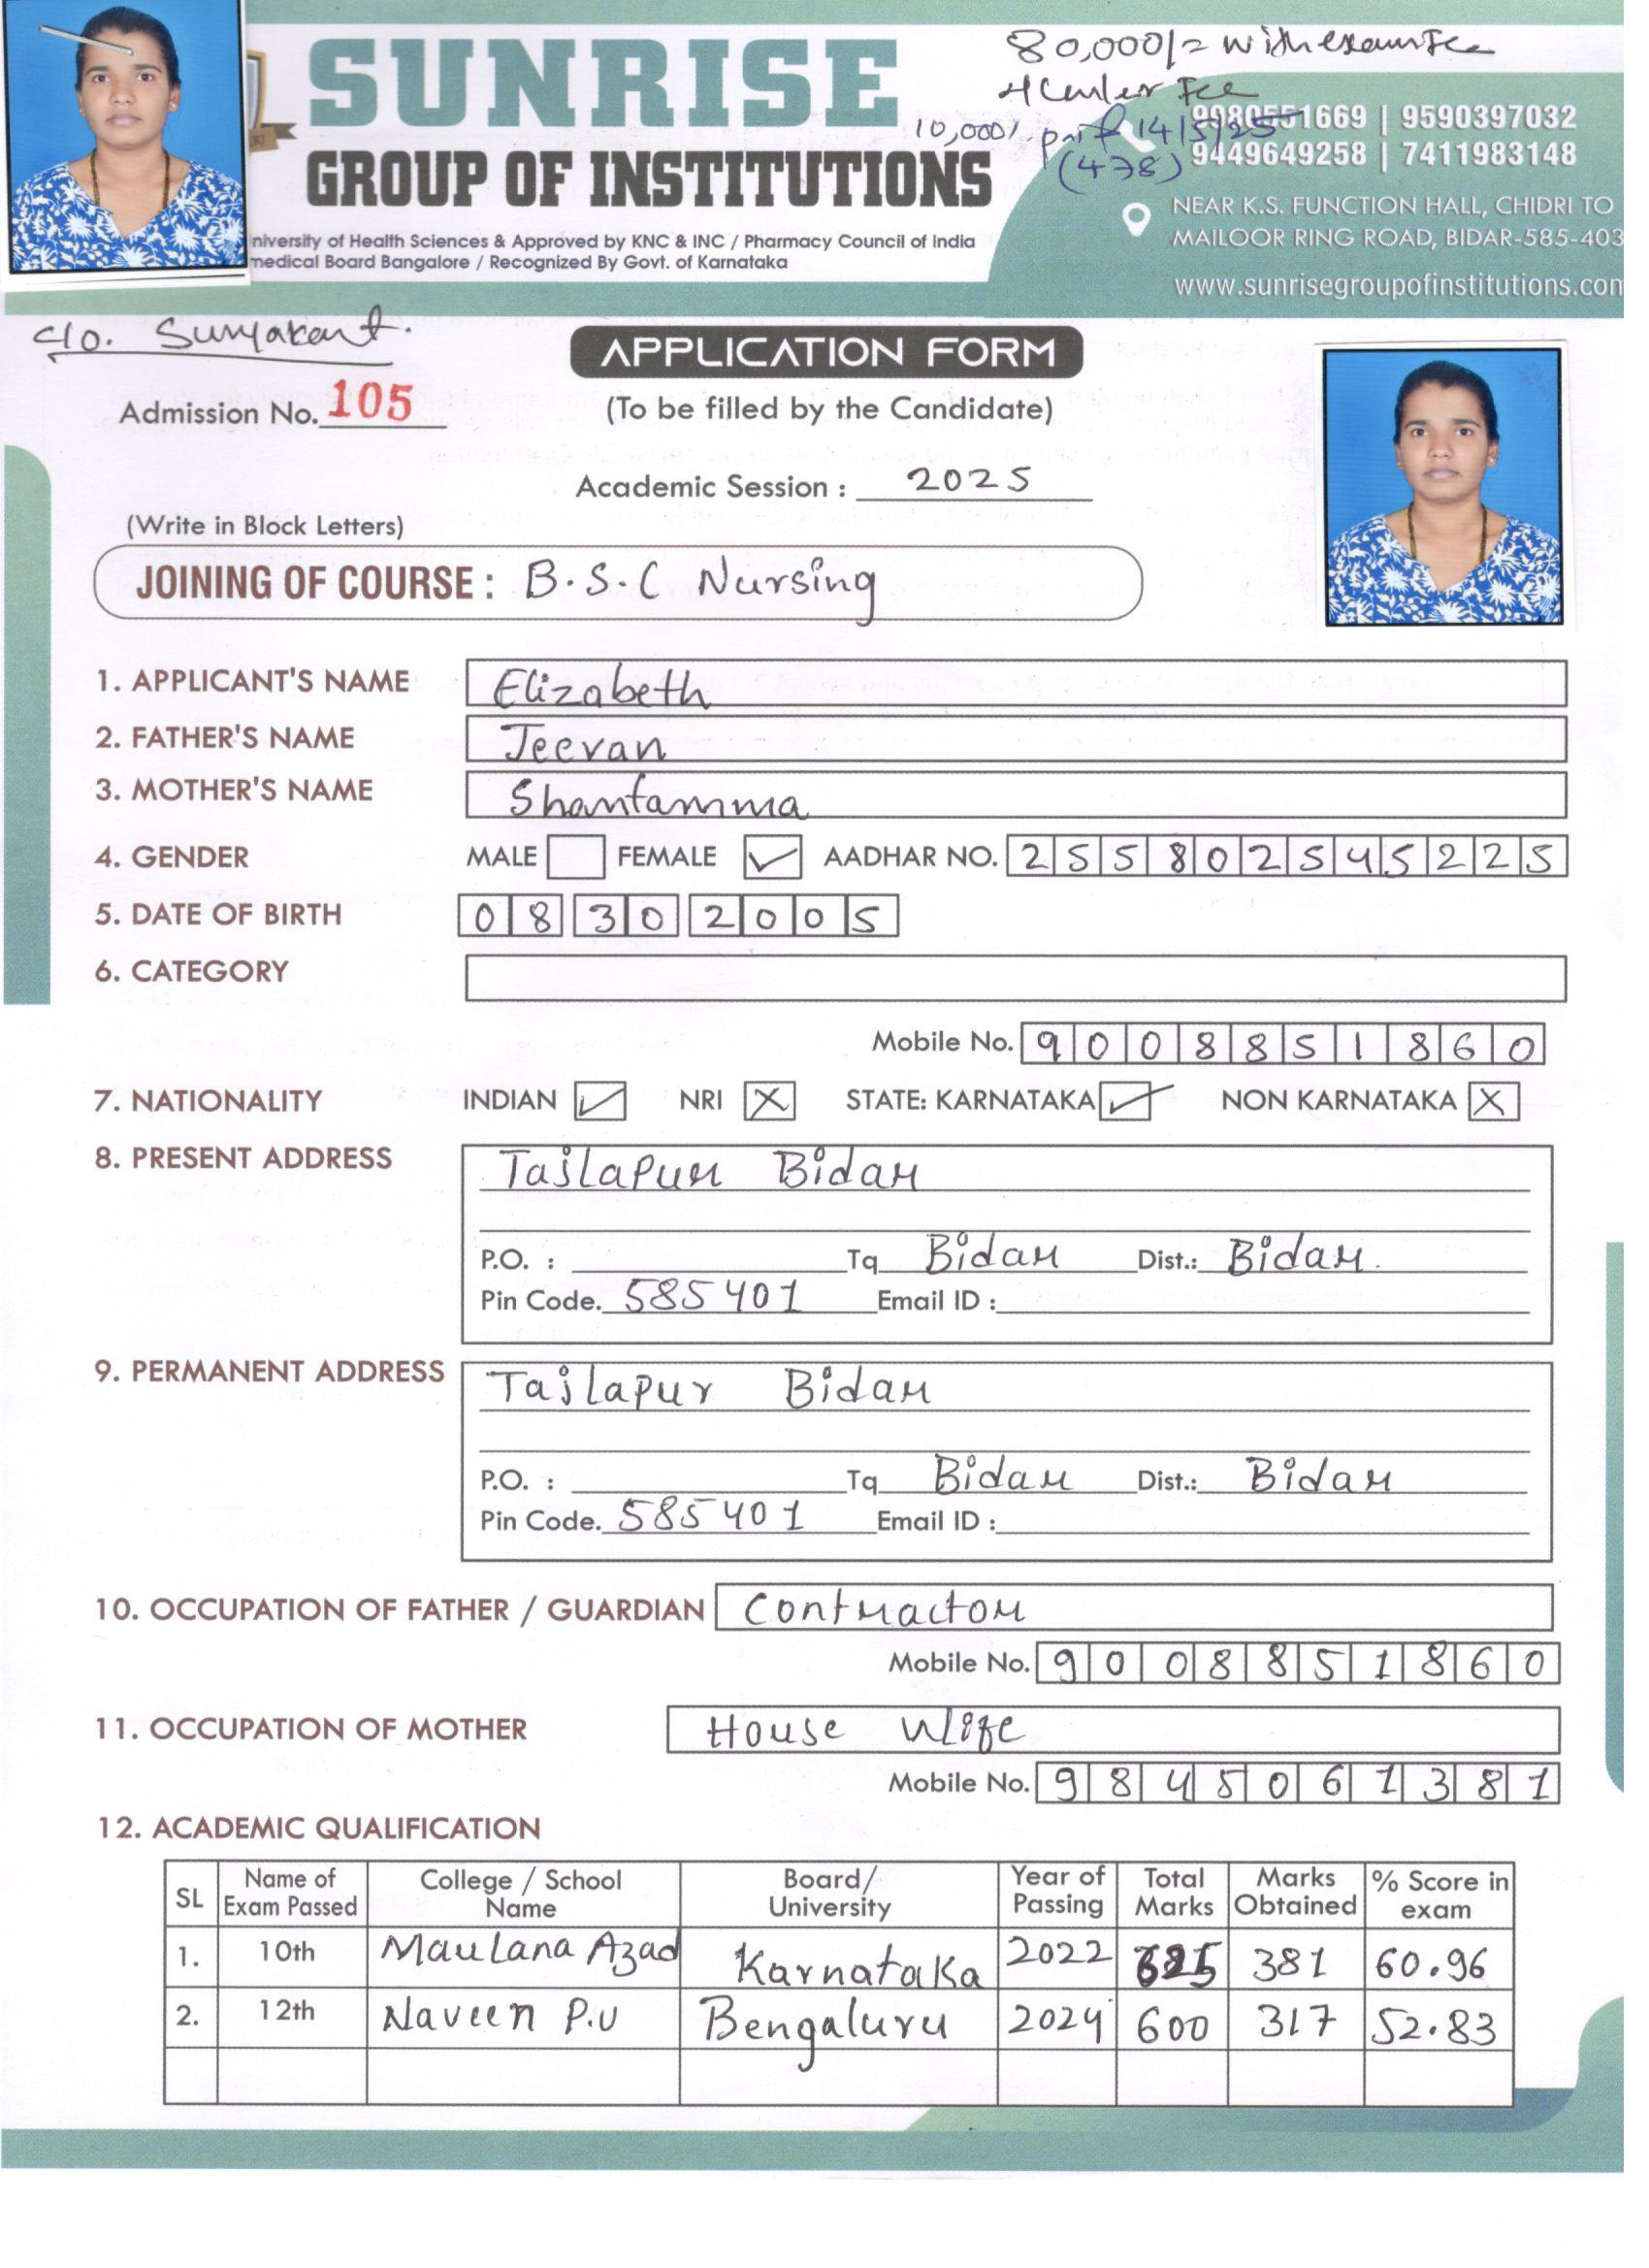 SUNRISE
GROUP OF INSTITUTIONS
niversity of Health Sciences & Approved by KNC & INC / Pharmacy Council of India
medical Board Bangalore / Recognized By Govt. of Karnataka
80,000/= with exam Fee
+ Center Fee
10,000/- paid 14/5/25
(478)
9980551669 | 9590397032
9449649258 | 7411983148
NEAR K.S. FUNCTION HALL, CHIDRI TO
MAILOOR RING ROAD, BIDAR-585-403
www.sunrisegroupofinstitutions.com
C/o. Suryakant.
APPLICATION FORM
Admission No. 105
(To be filled by the Candidate)
Academic Session : 2025
(Write in Block Letters)
JOINING OF COURSE : B.S.C Nursing
1. APPLICANT'S NAME Elizabeth
2. FATHER'S NAME Jeevan
3. MOTHER'S NAME Shantamma
4. GENDER MALE FEMALE AADHAR NO. 2 5 5 8 0 2 5 4 5 2 2 5
5. DATE OF BIRTH 0 8 3 0 2 0 0 5
6. CATEGORY
Mobile No. 9 0 0 8 8 5 1 8 6 0
7. NATIONALITY INDIAN NRI STATE: KARNATAKA NON KARNATAKA
8. PRESENT ADDRESS Tajlapur Bidar
P.O. : Tq Bidar Dist.: Bidar.
Pin Code. 585401 Email ID :
9. PERMANENT ADDRESS Tajlapur Bidar
P.O. : Tq Bidar Dist.: Bidar
Pin Code. 585401 Email ID :
10. OCCUPATION OF FATHER / GUARDIAN Contractor
Mobile No. 9 0 0 8 8 5 1 8 6 0
11. OCCUPATION OF MOTHER House Wife
Mobile No. 9 8 4 5 0 6 1 3 8 1
12. ACADEMIC QUALIFICATION
SL Name of Exam Passed College / School Name Board/ University Year of Passing Total Marks Marks Obtained % Score in exam
1. 10th Maulana Azad Karnataka 2022 625 381 60.96
2. 12th Naveen P.U Bengaluru 2024 600 317 52.83